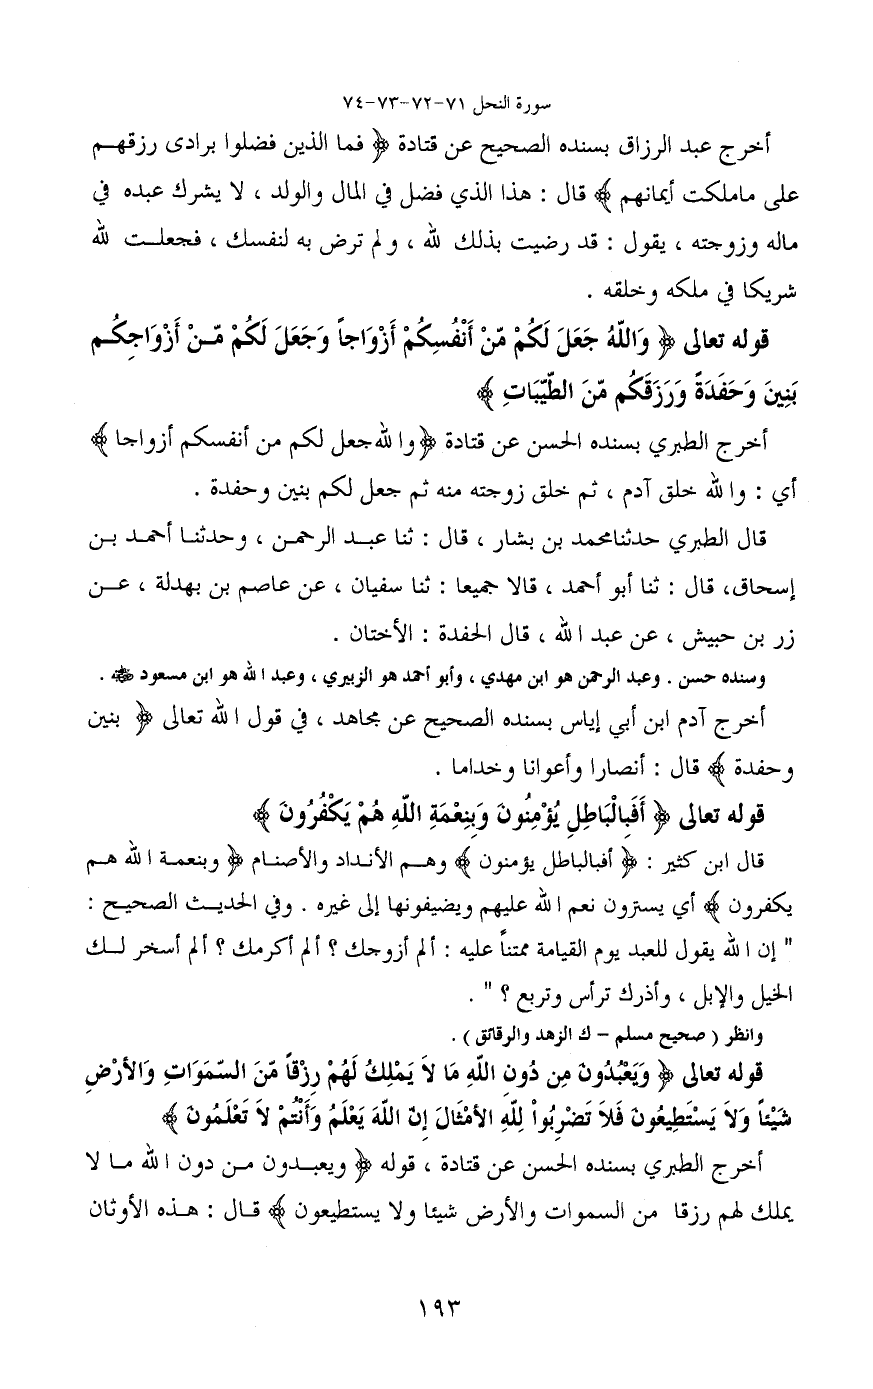 سورة النحل ٧١-٧٢-٧٣-٧٤
أخرج عبد الرزاق بسنده الصحيح عن قتادة ﴿ فما الذين فضلوا برادى رزقهم
على ماملكت أيمانهم ﴾ قال : هذا الذي فضل في المال والولد ، لا يشرك عبده في
ماله وزوجته ، يقول : قد رضيت بذلك لله ، ولم ترض به لنفسك ، فجعلت لله
شريكا في ملكه وخلقه .
قوله تعالى ﴿ وَاللّهُ جَعَلَ لَكُمْ مّنْ أَنْفُسِكُمْ أَزْوَاجاً وَجَعَلَ لَكُمْ مّنْ أَزْوَاجِكُم
بَنِينَ وَحَفَدَةً وَرَزَقَكُم مّنَ الطّيّبَاتِ ﴾
أخرج الطبري بسنده الحسن عن قتادة ﴿والله جعل لكم من أنفسكم أزواجا ﴾
أي : والله خلق آدم ، ثم خلق زوجته منه ثم جعل لكم بنين وحفدة .
قال الطبري حدثنامحمد بن بشار ، قال : ثنا عبد الرحمن ، وحدثنا أحمد بن
إسحاق، قال : ثنا أبو أحمد ، قالا جميعا : ثنا سفيان ، عن عاصم بن بهدلة ، عن
زر بن حبيش ، عن عبد الله ، قال الحفدة : الأختان .
وسنده حسن . وعبد الرحمن هو ابن مهدي ، وأبو أحمد هو الزبيري ، وعبد الله هو ابن مسعود ﷺ .
أخرج آدم ابن أبي إياس بسنده الصحيح عن مجاهد ، في قول الله تعالى ﴿ بنين
وحفدة ﴾ قال : أنصارا وأعوانا وخداما .
قوله تعالى ﴿ أَفَبِالْبَاطِلِ يُؤْمِنُونَ وَبِنِعْمَةِ اللّهِ هُمْ يَكْفُرُونَ ﴾
قال ابن كثير : ﴿ أفبالباطل يؤمنون ﴾ وهم الأنداد والأصنام ﴿ وبنعمة الله هم
يكفرون ﴾ أي يسترون نعم الله عليهم ويضيفونها إلى غيره . وفي الحديث الصحيح :
" إن الله يقول للعبد يوم القيامة ممتناً عليه : ألم أزوجك ؟ ألم أكرمك ؟ ألم أسخر لك
الخيل والإبل ، وأذرك ترأس وتربع ؟ " .
وانظر ( صحيح مسلم - ك الزهد والرقائق ) .
قوله تعالى ﴿ وَيَعْبُدُونَ مِن دُونِ اللّهِ مَا لاَ يَمْلِكُ لَهُمْ رِزْقاً مّنَ السّمَوَاتِ وَالأرْضِ
شَيْئاً وَلاَ يَسْتَطِيعُونَ فَلاَ تَضْرِبُواْ لِلّهِ الأمْثَالَ إِنّ اللّهَ يَعْلَمُ وَأَنْتُمْ لاَ تَعْلَمُونَ ﴾
أخرج الطبري بسنده الحسن عن قتادة ، قوله ﴿ ويعبدون من دون الله ما لا
يملك لهم رزقا من السموات والأرض شيئا ولا يستطيعون ﴾ قال : هذه الأوثان
١٩٣